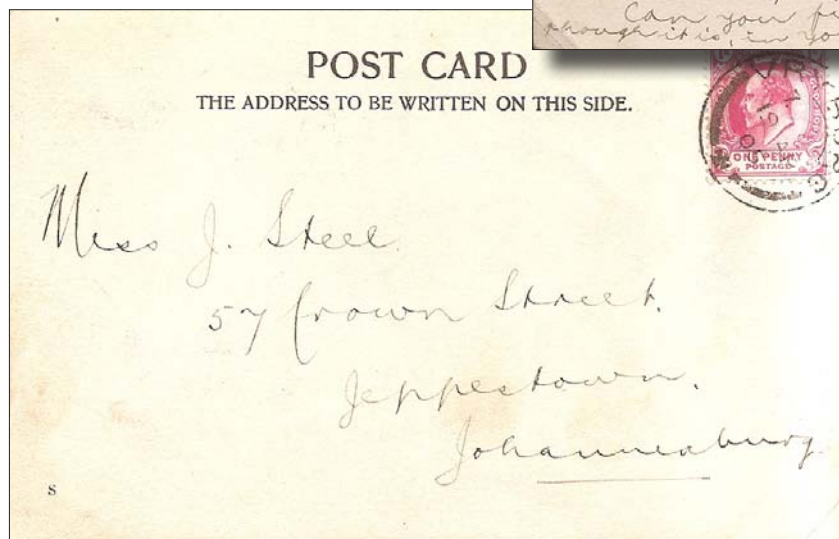 Can you
though it is, in
POST CARD
THE ADDRESS TO BE WRITTEN ON THIS SIDE.
ONE PENNY
POSTAGE
Miss J. Steel.
57 Crown Street.
Jeppestown.
Johannesburg
S